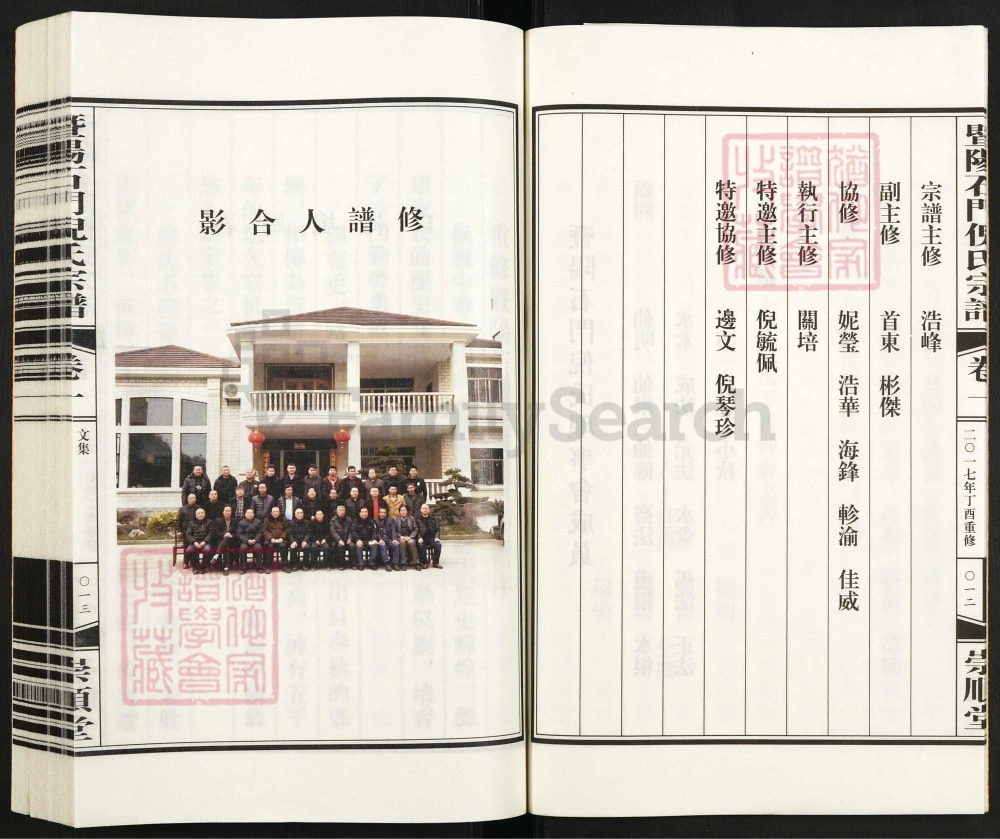 暨陽石門倪氏宗譜
卷一
二〇一七年丁酉重修
〇一二
崇順堂
宗譜主修 浩峰
副主修 首東 彬傑
協修 妮瑩 浩華 海鋒 軫渝 佳威
執行主修 關培
特邀主修 倪毓佩
特邀協修 邊文 倪琴珍
修譜人合影
暨陽石門倪氏宗譜
卷一
文集
〇一三
崇順堂
FamilySearch